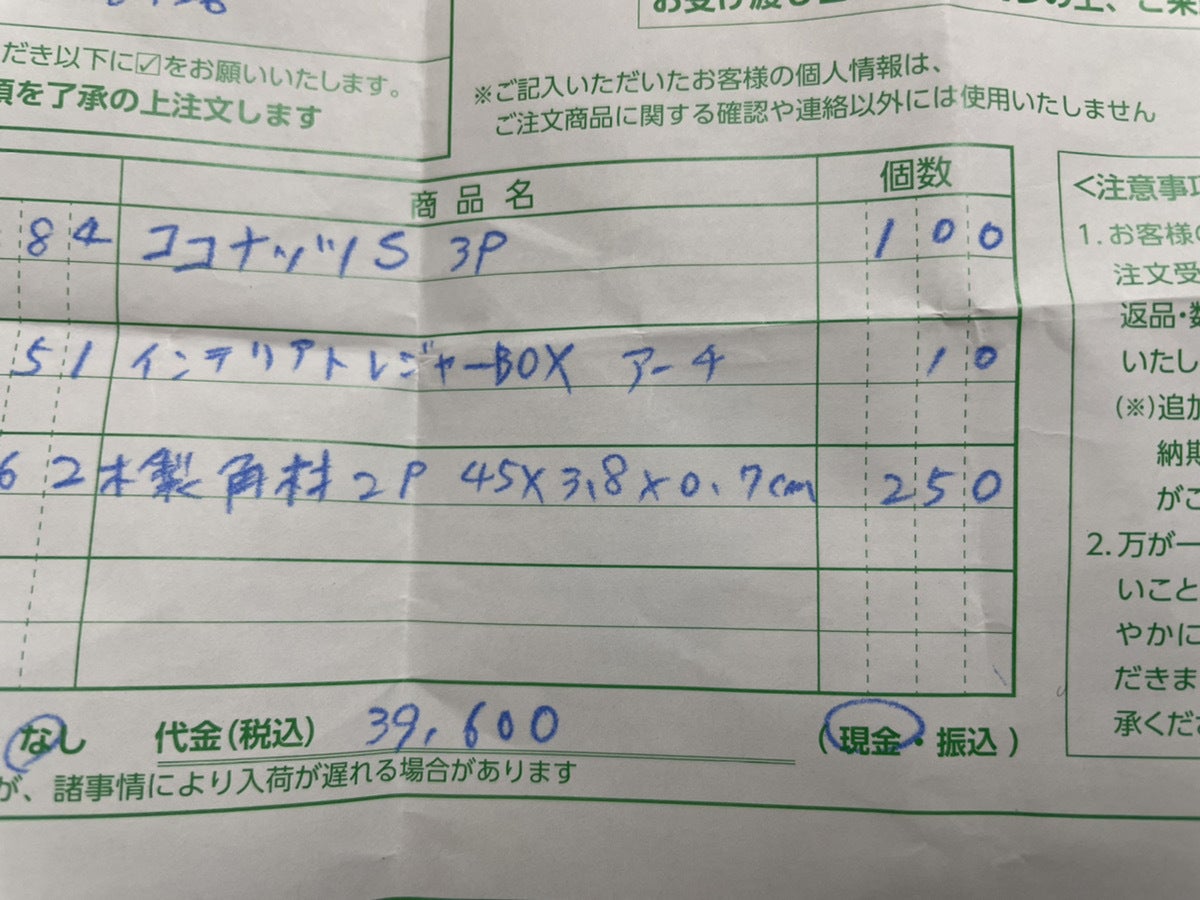 だき以下に☑をお願いいたします。
項を了承の上注文します
※ご記入いただいたお客様の個人情報は、
ご注文商品に関する確認や連絡以外には使用いたしません
商品名 個数
84 ココナッツS 3P 100
51 インテリアトレジャーBOX アーチ 10
62 木製角材2P 45×3.8×0.7cm 250
なし 代金(税込) 39,600 (現金・振込)
が、諸事情により入荷が遅れる場合があります
<注意事項
1. お客様の
注文受
返品・数
いたし
(※)追加
納期
がご
2. 万が一
いこと
やかに
だきま
承くださ